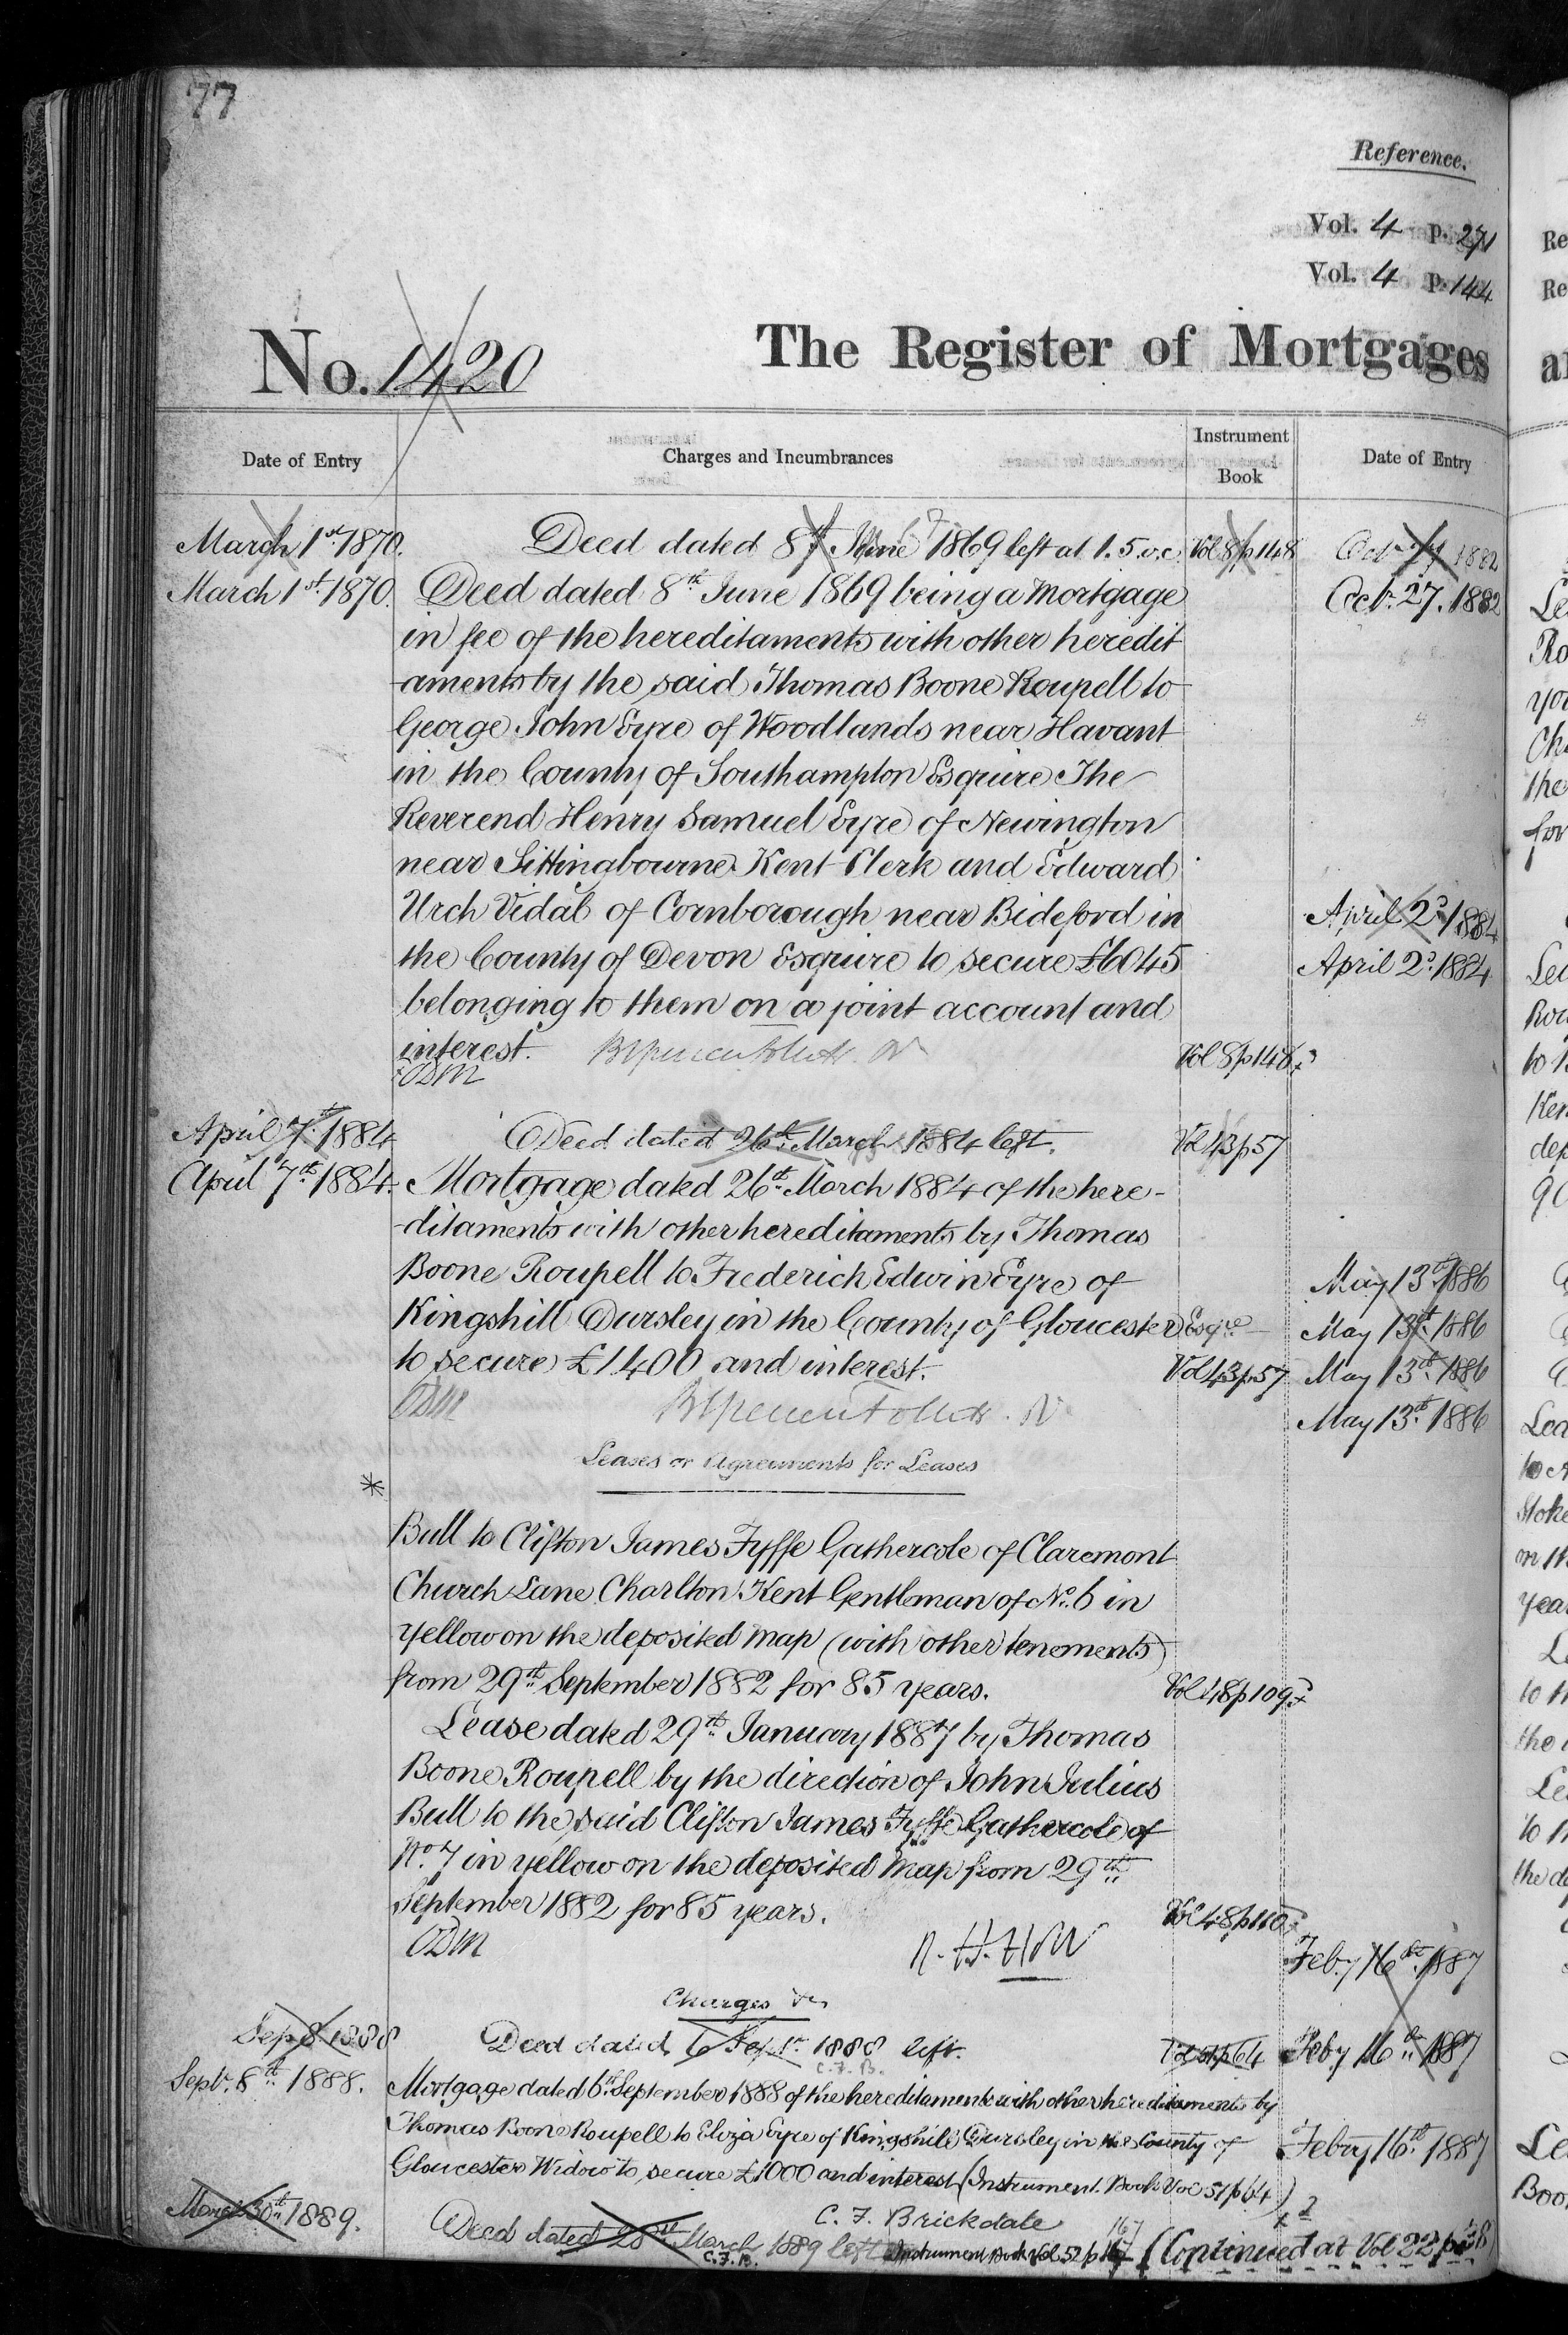 77
Reference.
Vol. 4 p. 271
Vol. 4 p. 144
No. 1420 The Register of Mortgages
Date of Entry Charges and Incumbrances Instrument Book Date of Entry
March 1st 1870. Deed dated 8th June 1869 left at 1.5.o.c. Vol 8 p 148 Oct 1882
March 1st 1870. Deed dated 8th June 1869 being a Mortgage Oct. 27. 1882
in fee of the hereditaments with other heredit
-aments by the said Thomas Boone Roupell to
George John Eyre of Woodlands near Havant
in the County of Southampton Esquire The
Reverend Henry Samuel Eyre of Newington
near Sittingbourne Kent Clerk and Edward
Urch Vidal of Cornborough near Bideford in April 2d 1884
the County of Devon Esquire to secure £6045 April 2d 1884
belonging to them on a joint account and
interest. Vol 8 p 148
ODM
April 7th 1884 Deed dated 26th March 1884 left. Vol 43 p 57
April 7th 1884. Mortgage dated 26th March 1884 of the here-
-ditaments with other hereditaments by Thomas
Boone Roupell to Frederick Edwin Eyre of May 13th 1886
Kingshill Dursley in the County of Gloucester Esqre May 13th 1886
to secure £1400 and interest. Vol 43 p 57 May 13th 1886
ODM May 13th 1886
Leases or Agreements for Leases
*
Bull to Clifton James Fyffe Gathercole of Claremont
Church Lane Charlton Kent Gentleman of No. 6 in
yellow on the deposited map (with other tenements)
from 29th September 1882 for 85 years. Vol 48 p 109
Lease dated 29th January 1887 by Thomas
Boone Roupell by the direction of John Julius
Bull to the said Clifton James Fyffe Gathercole of
No. 7 in yellow on the deposited map from 29th
September 1882 for 85 years. Vol 48 p 110
ODM
Feby 16th 1887
Charges &c
Sep 8 1888 Deed dated 6 Sept 1888 left. Vol 51 p 64 Feby 16th 1887
C. F. B.
Septr. 8th 1888. Mortgage dated 6th September 1888 of the hereditaments with other hereditaments by
Thomas Boone Roupell to Eliza Eyre of Kingshill Dursley in the County of Febry 16th 1887
Gloucester Widow to secure £1000 and interest (Instrument Book Vol 51 p 64)
C. F. Brickdale
March 30th 1889. Deed dated 28th March 1889 left Instrument Book Vol 52 p 167 (Continued at Vol 22 p
C.F.B.